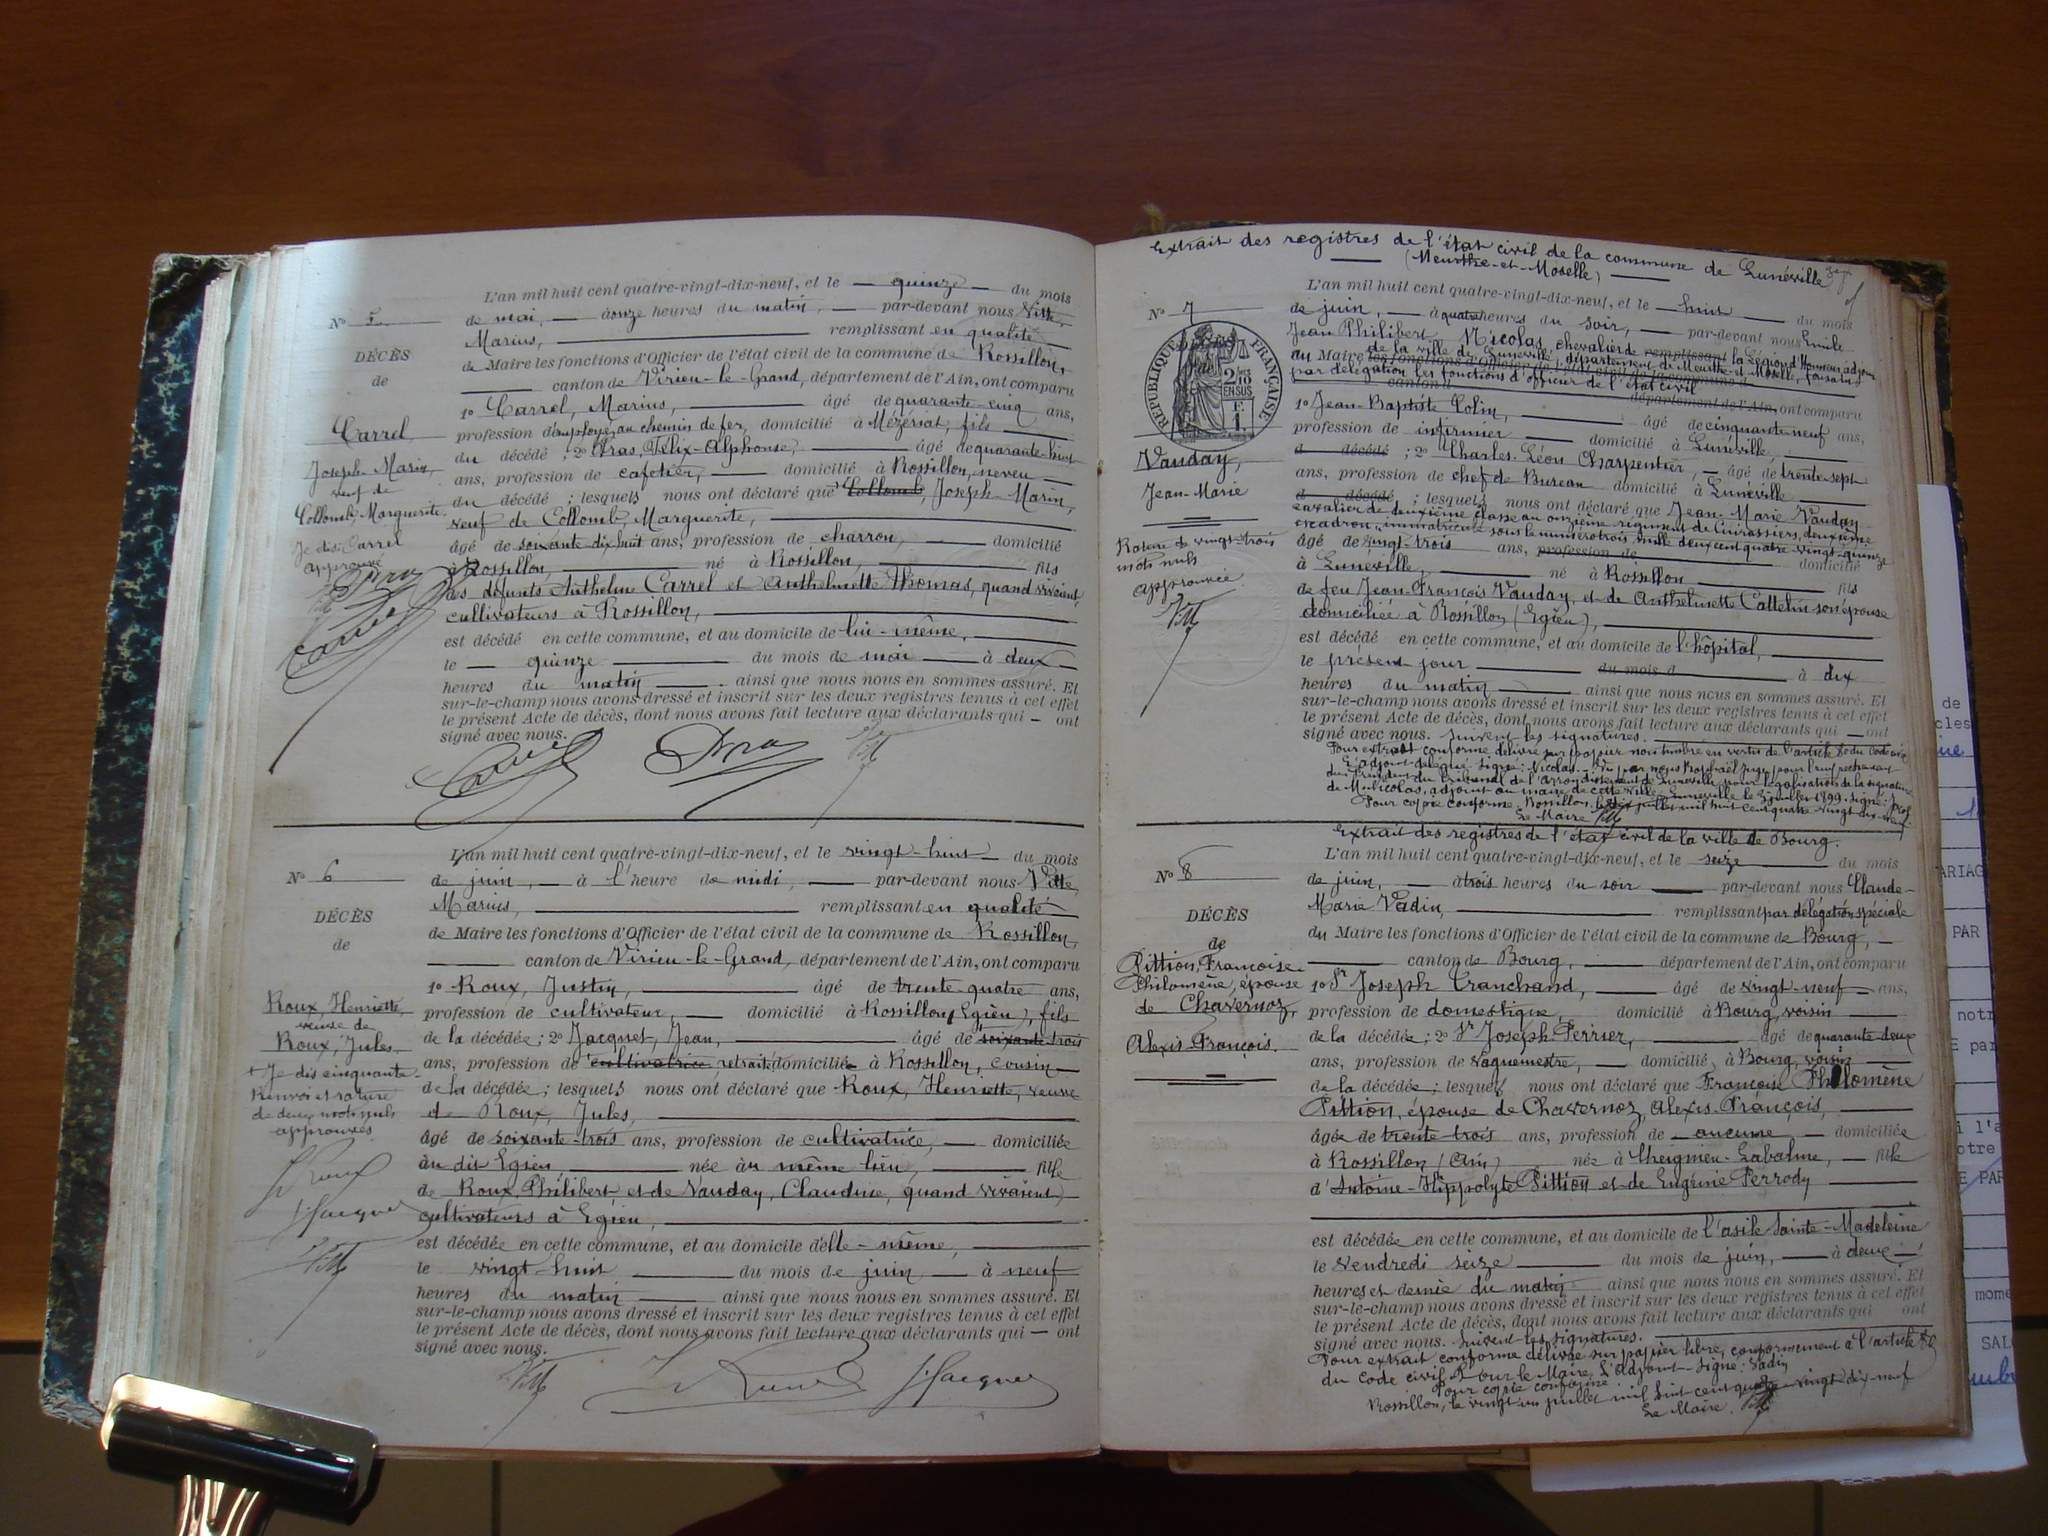 L'an mil huit cent quatre-vingt-dix-neuf, et le — quinze — du mois
N° 5
de mai, — à onze heures du matin, — par-devant nous Vitte,
Marius, remplissant en qualité
DÉCÈS
de Maire les fonctions d'Officier de l'état civil de la commune de Rossillon,
de
canton de Virieu-le-Grand, département de l'Ain, ont comparu
1° Carrel, Marius, âgé de quarante-cinq ans,
Carrel,
profession d'employé au chemin de fer, domicilié à Mézériat, fils
du décédé ; 2° Gras, Félix-Alphonse, âgé de quarante-huit
Joseph-Marin,
ans, profession de cafetier, domicilié à Rossillon, neveu
veuf de
du décédé ; lesquels nous ont déclaré que Collomb, Joseph-Marin,
Collomb, Marguerite.
veuf de Collomb, Marguerite,
Je dis: Carrel
âgé de soixante dix huit ans, profession de charron, domicilié
approuvé
à Rossillon, né à Rossillon, fils
des défunts Anthelme Carrel et Anthelmette Thomas, quand vivaient,
cultivateurs à Rossillon,
est décédé en cette commune, et au domicile de lui-même,
le — quinze du mois de mai — à deux
heures du matin ainsi que nous nous en sommes assuré. Et
sur-le-champ nous avons dressé et inscrit sur les deux registres tenus à cet effet
le présent Acte de décès, dont nous avons fait lecture aux déclarants qui — ont
signé avec nous.
L'an mil huit cent quatre-vingt-dix-neuf, et le vingt-huit du mois
N° 6
de juin, — à l'heure de midi, — par-devant nous Vitte,
Marius, remplissant en qualité
DÉCÈS
de Maire les fonctions d'Officier de l'état civil de la commune de Rossillon,
de
canton de Virieu-le-Grand, département de l'Ain, ont comparu
1° Roux, Justin, âgé de trente-quatre ans,
Roux, Henriette,
profession de cultivateur, domicilié à Rossillon (Egieu), fils
veuve de
de la décédée ; 2° Jacquet, Jean, âgé de soixante-trois
Roux, Jules.
ans, profession de cultivatrice, retraité, domicilié à Rossillon, cousin
+ Je dis cinquante
de la décédée ; lesquels nous ont déclaré que Roux, Henriette, veuve
Renvoi et rature
de Roux, Jules,
de deux mots nuls
approuvés
âgé de soixante-trois ans, profession de cultivatrice, — domiciliée
au dit Egieu, née au même lieu, fille
de Roux, Philibert et de Vauday, Claudine, quand vivaient,
cultivateurs à Egieu,
est décédée en cette commune, et au domicile d'elle-même,
le vingt-huit du mois de juin — à neuf
heures du matin ainsi que nous nous en sommes assuré. Et
sur-le-champ nous avons dressé et inscrit sur les deux registres tenus à cet effet
le présent Acte de décès, dont nous avons fait lecture aux déclarants qui — ont
signé avec nous.
J Roux J Jacquet
Extrait des registres de l'état civil de la commune de Lunéville
(Meurthe-et-Moselle)
L'an mil huit cent quatre-vingt-dix-neuf, et le — huit du mois
N° 7
de juin, — à quatre heures du soir, — par-devant nous Emile
Jean Philibert Nicolas, chevalier de remplissant la Légion d'Honneur, adjoint
au Maire de la ville de Lunéville, département de Meurthe-et-Moselle, faisant
les fonctions d'Officier de l'état civil de la commune d
par délégation les fonctions d'officier de l'état civil
canton d département de l'Ain, ont comparu
RÉPUBLIQUE FRANÇAISE
2/10 EN SUS
1° Jean-Baptiste Colin, âgé de cinquante-neuf ans,
profession de infirmier domicilié à Lunéville,
Vauday,
d décédé ; 2° Charles-Léon Charpentier, — âgé de trente-sept
ans, profession de chef de Bureau domicilié à Lunéville
Jean-Marie
d décédé ; lesquels nous ont déclaré que Jean-Marie Vauday
cavalier de deuxième classe au onzième régiment de Cuirassiers, deuxième
escadron, immatriculé sous le numéro trois mille deux cent quatre-vingt-quinze
Rature de vingt-trois
âgé de vingt-trois ans, profession de domicilié
mots nuls
à Lunéville, né à Rossillon fils
approuvée
de feu Jean-François Vauday, et de Anthelmette Cattelin son épouse
domiciliée à Rossillon (Egieu),
est décédé en cette commune, et au domicile de l'hôpital,
le présent jour du mois d à dix
heures du matin ainsi que nous nous en sommes assuré. Et
sur-le-champ nous avons dressé et inscrit sur les deux registres tenus à cet effet
le présent Acte de décès, dont nous avons fait lecture aux déclarants qui — ont
signé avec nous. Suivent les signatures.
Pour extrait conforme délivré sur papier non timbré en vertu de l'article 80 du Code civil
L'adjoint délégué. Signé: Nicolas. Vu par nous Raphaël Juge, pour l'empêchement
du Président du Tribunal de l'arrondissement de Lunéville pour légalisation de la signature
de M. Nicolas, adjoint au maire de cette ville. Lunéville le 3 juillet 1899. Signé:
Pour copie conforme. Rossillon, le six juillet mil huit cent quatre-vingt-dix-neuf
Le Maire
Extrait des registres de l'état civil de la ville de Bourg.
L'an mil huit cent quatre-vingt-dix-neuf, et le seize du mois
N° 8
de juin, — à trois heures du soir — par-devant nous Claude-
Marie Vadin, remplissant par délégation spéciale
DÉCÈS
du Maire les fonctions d'Officier de l'état civil de la commune de Bourg,
de
canton de Bourg, département de l'Ain, ont comparu
Pittion, Françoise
Philomène, épouse
1° Sr Joseph Tranchand, âgé de vingt-neuf ans,
de Chavernoz,
profession de domestique, domicilié à Bourg, voisin
Alexis-François.
de la décédée ; 2° Sr Joseph Perrier, âgé de quarante-deux
ans, profession de vaguemestre, domicilié à Bourg, voisin
de la décédée ; lesquels nous ont déclaré que Françoise Philomène
Pittion, épouse de Chavernoz, Alexis-François,
âgée de trente-trois ans, profession de aucune domiciliée
à Rossillon (Ain) née à Cheignieu-Labalme, — fille
d'Antoine-Hippolyte Pittion et de Eugénie Perrody
est décédée en cette commune, et au domicile de l'asile Sainte-Madeleine
le Vendredi seize du mois de juin, à deux
heures et demie du matin ainsi que nous nous en sommes assuré. Et
sur-le-champ nous avons dressé et inscrit sur les deux registres tenus à cet effet
le présent Acte de décès, dont nous avons fait lecture aux déclarants qui ont
signé avec nous. Suivent les signatures.
Pour extrait conforme délivré sur papier libre, conformément à l'article 80
du Code civil Pour le Maire, L'Adjoint - Signé: Vadin
Pour copie conforme
Rossillon, le vingt-un juillet mil huit cent quatre-vingt-dix-neuf
Le Maire.